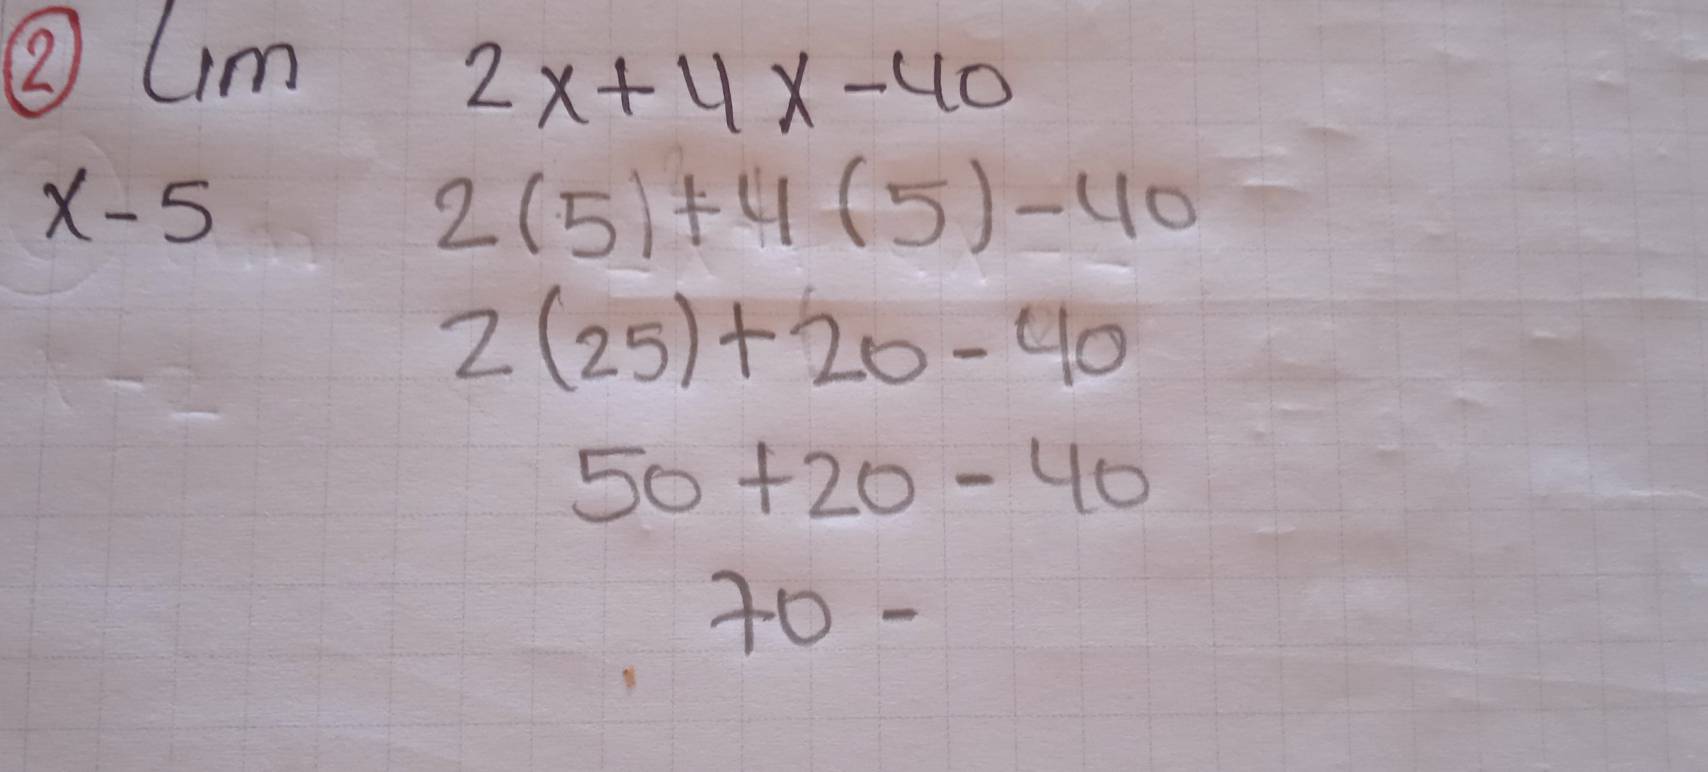 ② Lim 2x+4x-40
x-5 2(5)+4(5)-40
2(25)+20-40
50+20-40
70-